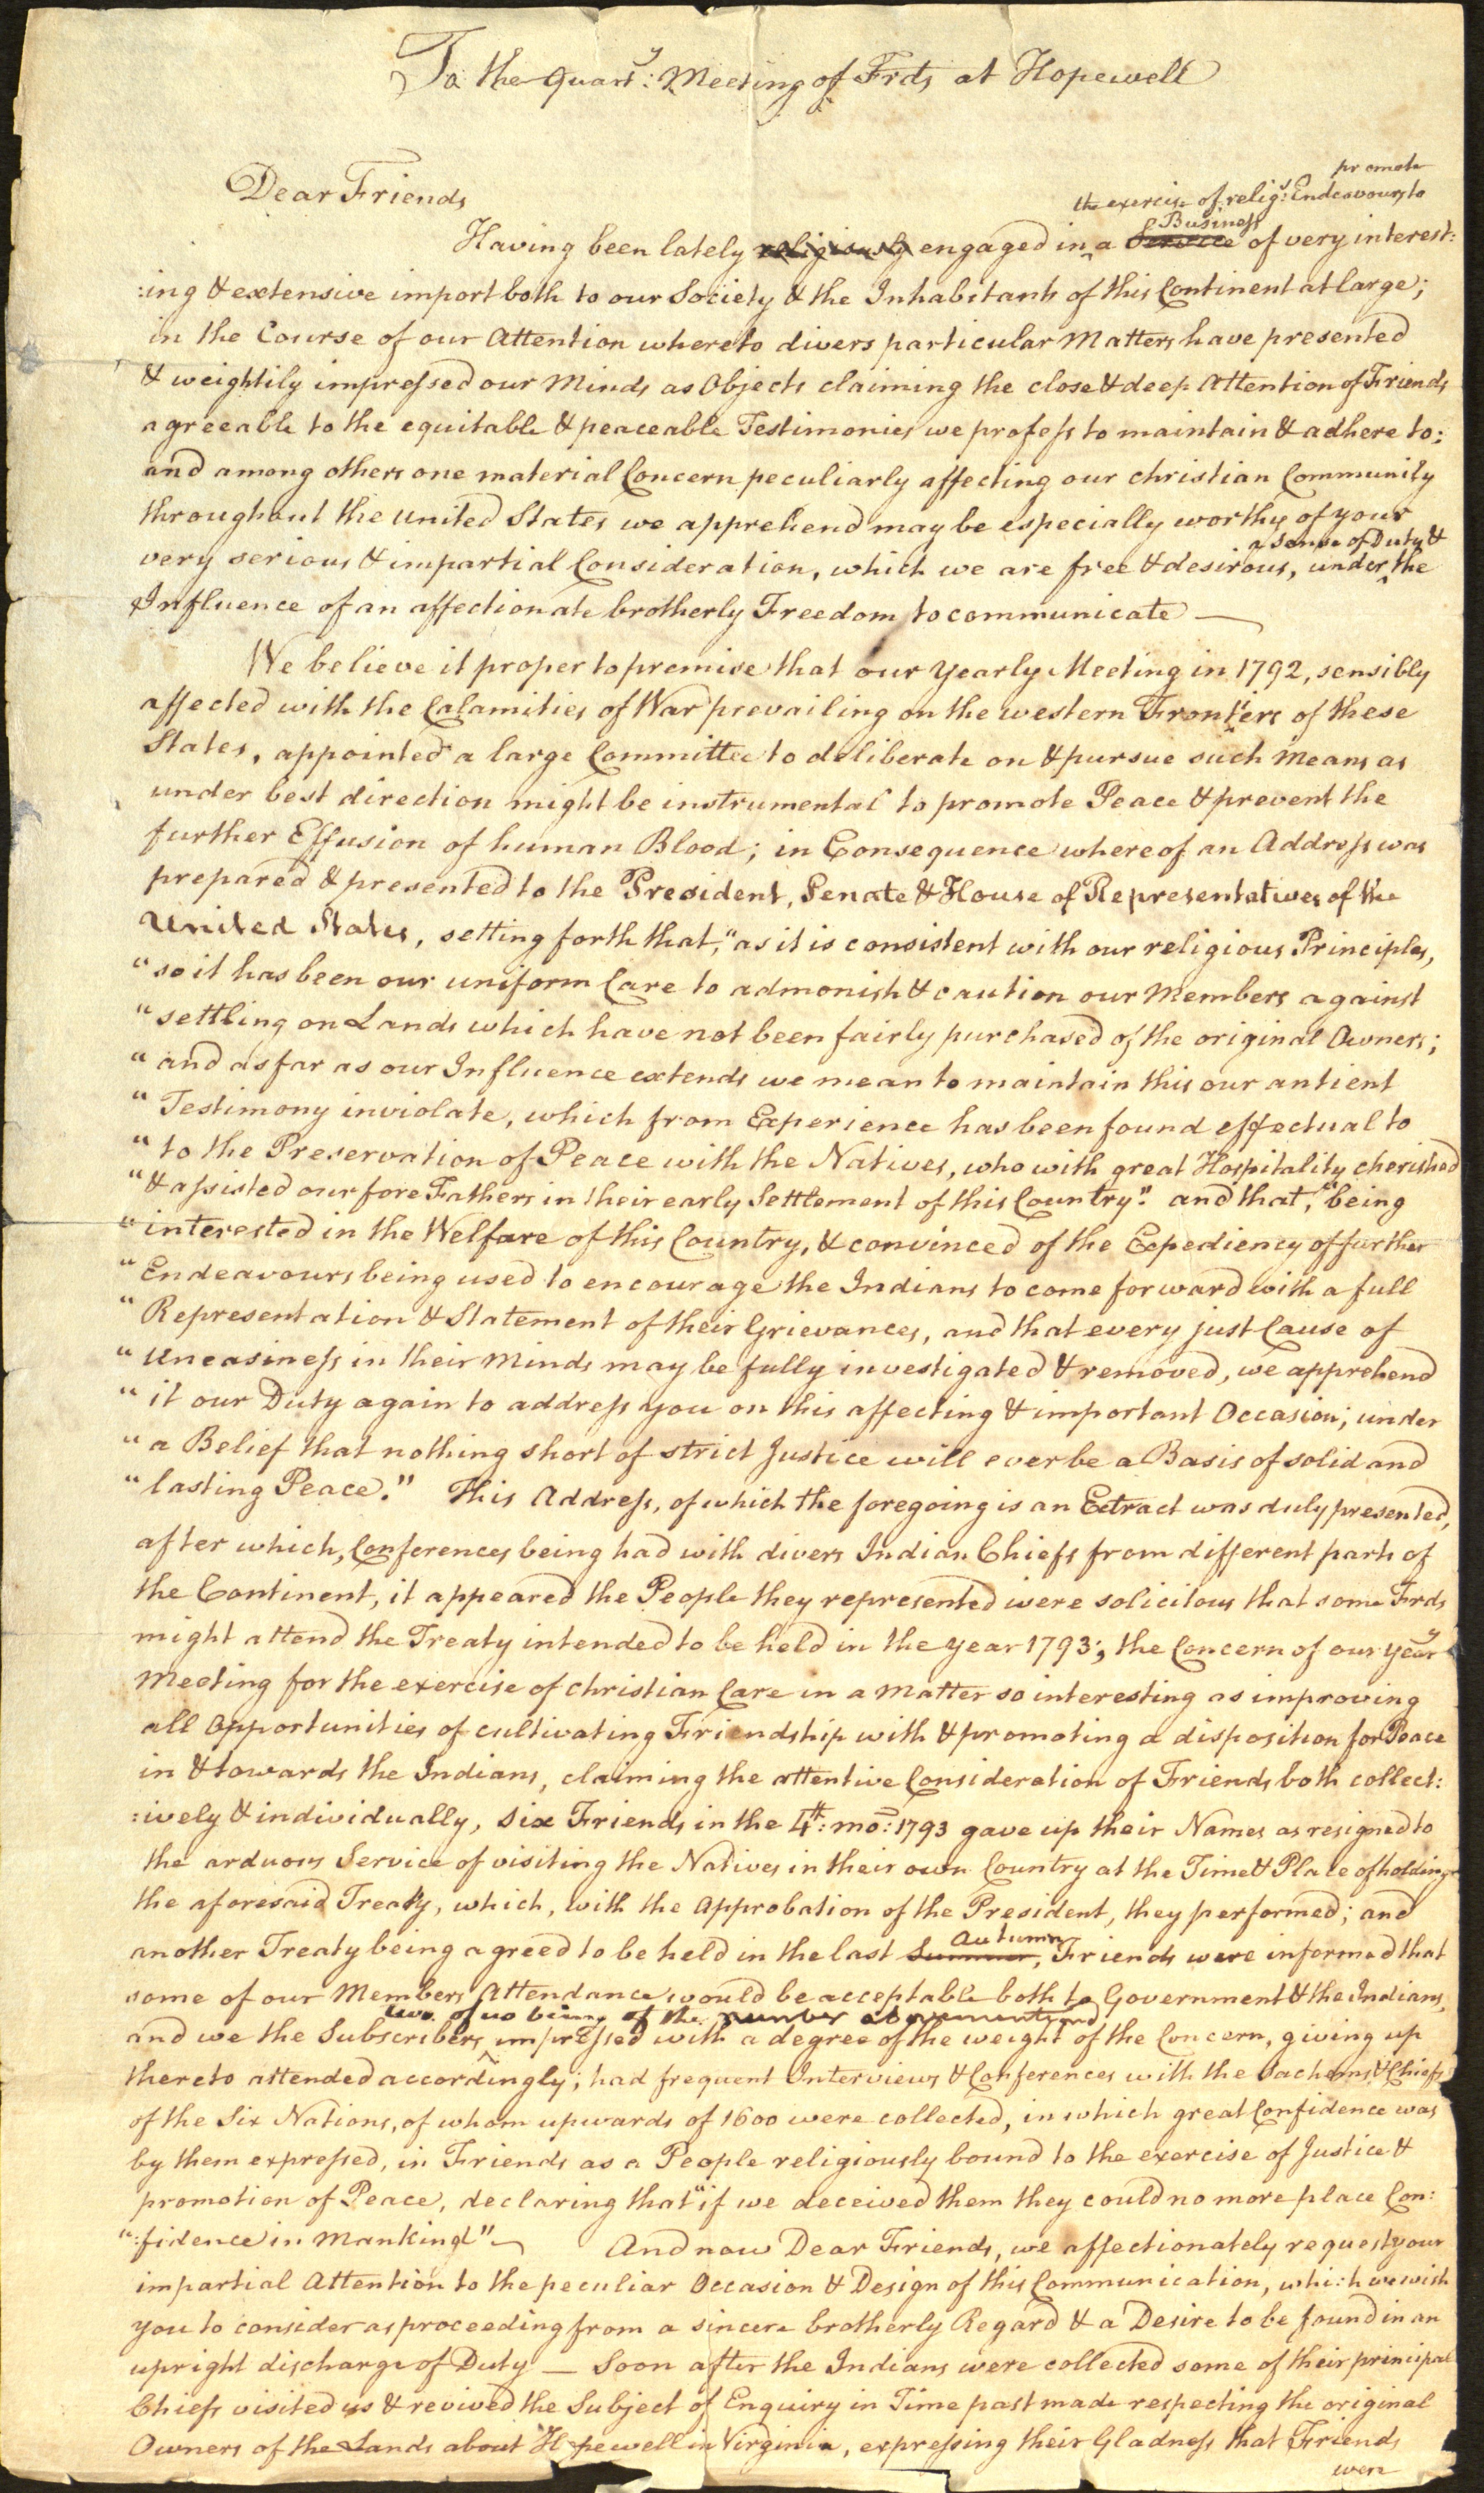 To the Quart.y: Meeting of Frds at Hopewell
Dear Friends
promote
the exercise of relig.s: Endeavours to
Business
Having been lately religiously engaged in a Service of very interest:
:ing & extensive import both to our Society & the Inhabitants of this Continent at large;
in the Course of our Attention whereto divers particular Matters have presented
& weightily impressed our Minds as Objects claiming the close & deep Attention of Friends
agreeable to the equitable & peaceable Testimonies we profess to maintain & adhere to;
and among others one material Concern peculiarly affecting our christian Community
throughout the united States we apprehend may be especially worthy of your
a sense of Duty &
very serious & impartial Consideration, which we are free & desirous, under the
Influence of an affectionate brotherly Freedom to communicate —
We believe it proper to premise that our Yearly Meeting in 1792, sensibly
affected with the Calamities of War prevailing on the western Frontiers of these
States, appointed a large Committee to deliberate on & pursue such Means as
under best direction might be instrumental to promote Peace & prevent the
further Effusion of human Blood; in Consequence whereof an Address was
prepared & presented to the President, Senate & House of Representatives of the
United States, setting forth that, "as it is consistent with our religious Principles,
"so it has been our uniform Care to admonish & caution our Members against
"settling on Lands which have not been fairly purchased of the original Owners;
"and as far as our Influence extends we mean to maintain this our antient
"Testimony inviolate, which from Experience has been found effectual to
"to the Preservation of Peace with the Natives, who with great Hospitality cherished
"& assisted our fore Fathers in their early Settlement of this Country." and that, "being
"interested in the Welfare of this Country, & convinced of the Expediency of further
"Endeavours being used to encourage the Indians to come forward with a full
"Representation & Statement of their Grievances, and that every just Cause of
"Uneasiness in their Minds may be fully investigated & removed, we apprehend
"it our Duty again to address you on this affecting & important Occasion; under
"a Belief that nothing short of strict Justice will ever be a Basis of solid and
"lasting Peace." This Address, of which the foregoing is an Extract was duly presented,
after which, Conferences being had with divers Indian Chiefs from different parts of
the Continent, it appeared the People they represented were solicitous that some Frds
might attend the Treaty intended to be held in the year 1793; the Concern of our Year.y
Meeting for the exercise of christian Care in a Matter so interesting as improving
all Opportunities of cultivating Friendship with & promoting a disposition for Peace
in & towards the Indians, claiming the attentive Consideration of Friends both collect:
:ively & individually, six Friends in the 4th: mo: 1793 gave up their Names as resigned to
the arduous Service of visiting the Natives in their own Country at the Time & Place of holding
the aforesaid Treaty, which, with the Approbation of the President, they performed; and
Autumn
another Treaty being agreed to be held in the last Summer, Friends were informed that
some of our Members Attendance would be acceptable both to Government & the Indians,
two of us being of the number abovementioned
and we the Subscribers impressed with a degree of the weight of the Concern, giving up
thereto attended accordingly; had frequent Interviews & Conferences with the Sachems & Chiefs
of the Six Nations, of whom upwards of 1600 were collected, in which great Confidence was
by them expressed, in Friends as a People religiously bound to the exercise of Justice &
promotion of Peace, declaring that "if we deceived them they could no more place Con:
":fidence in Mankind" — And now Dear Friends, we affectionately request your
impartial Attention to the peculiar Occasion & Design of this Communication, which we wish
you to consider as proceeding from a sincere brotherly Regard & a Desire to be found in an
upright discharge of Duty — Soon after the Indians were collected some of their principal
Chiefs visited us & revived the Subject of Enquiry in Time past made respecting the original
Owners of the Lands about Hopewell in Virginia, expressing their Gladness that Friends
were